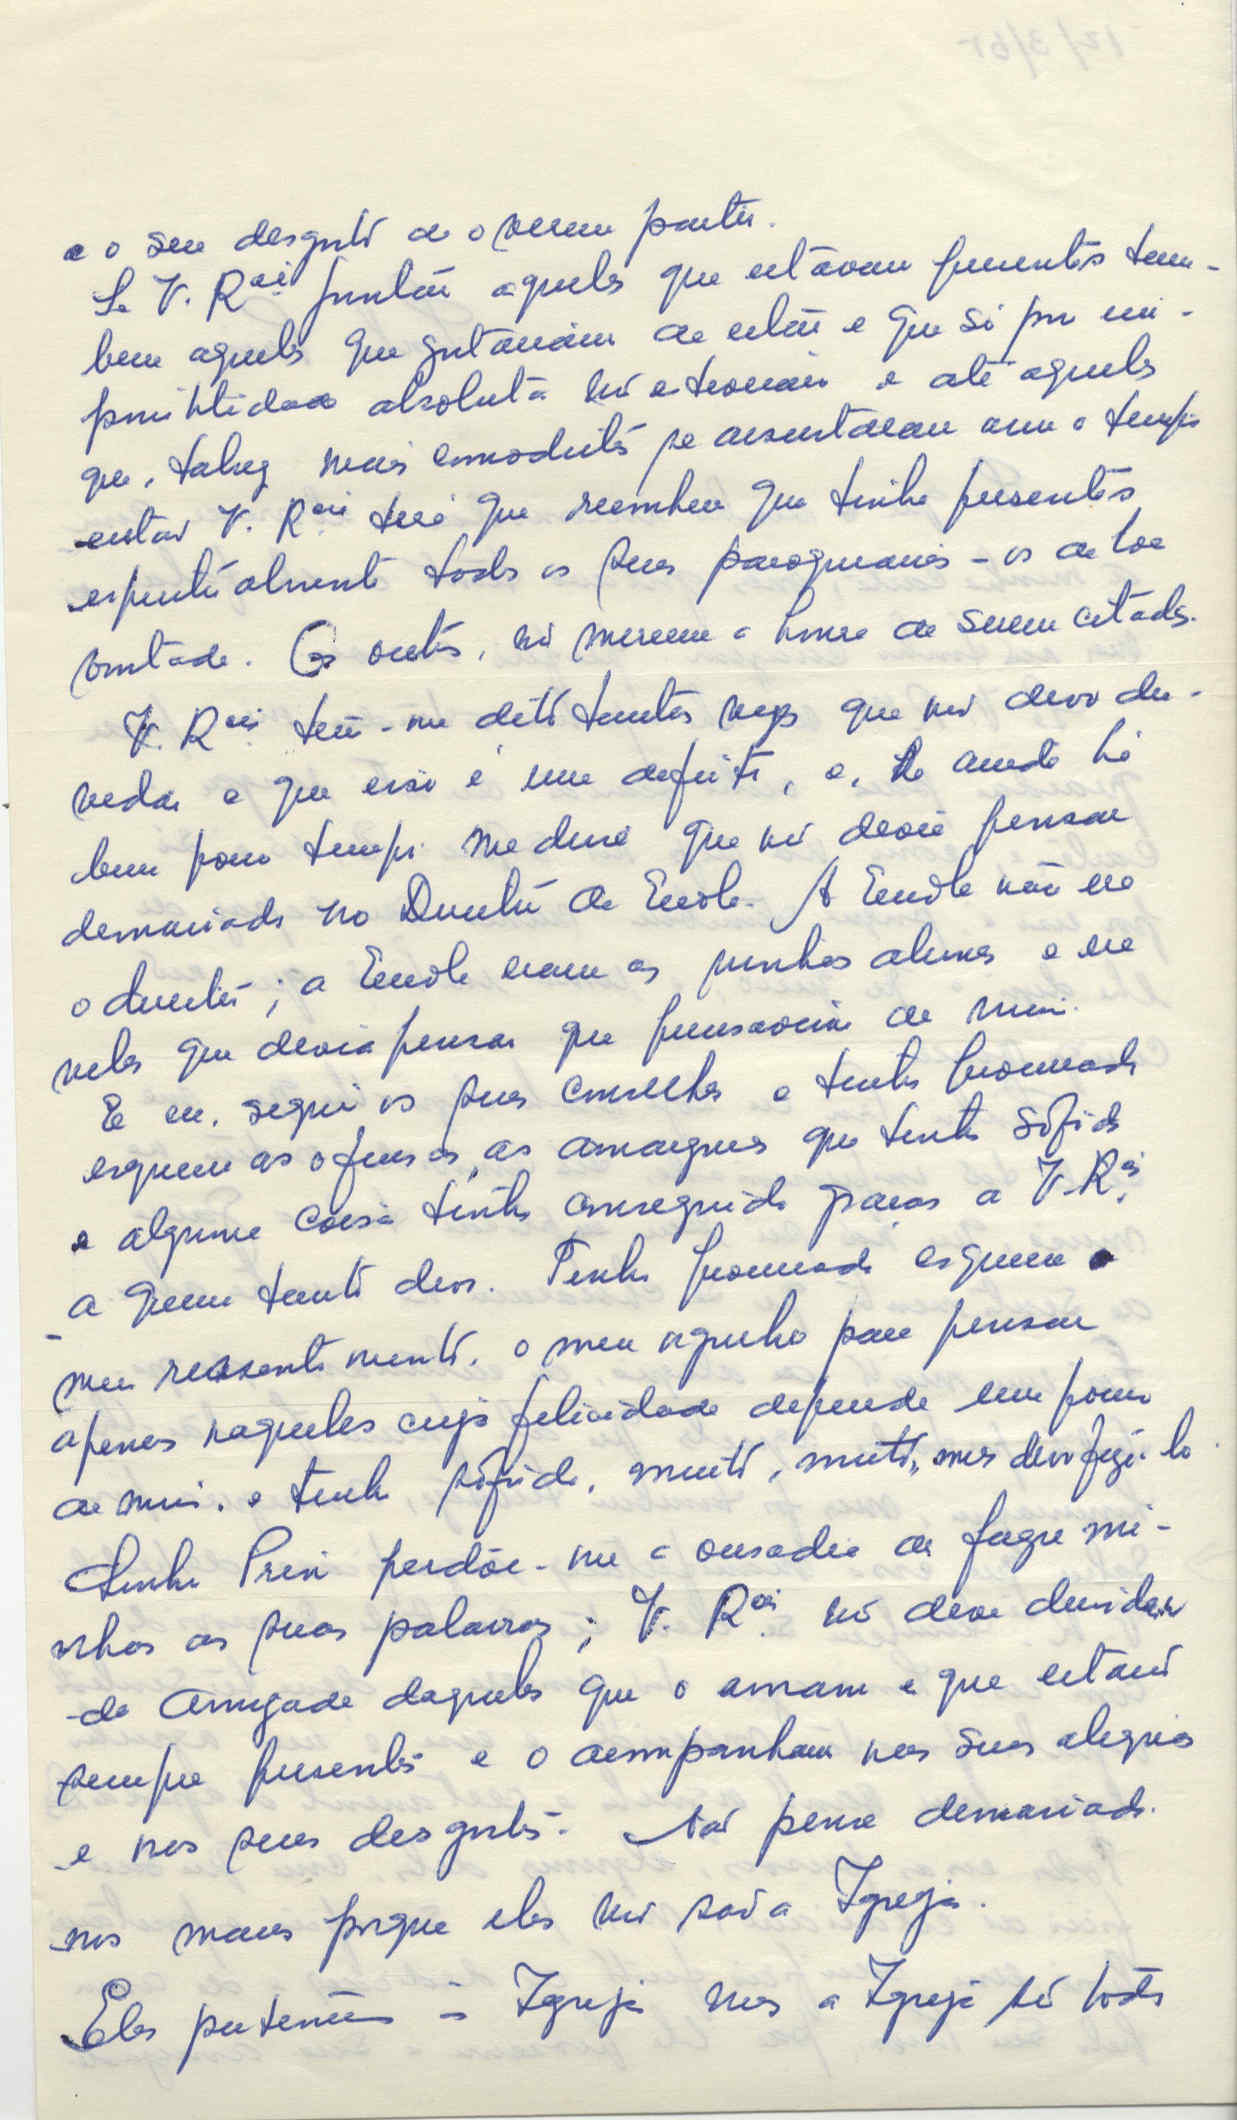 e o seu desgosto de o verem partir.
Se V. Rcia juntar àqueles que estavam presentes tam-
bem aqueles que gostariam de estar e que só por im-
possibilidade absoluta não estiveram e até aqueles
que, talvez mais comodistas se assustaram com o tempo
então V. Rcia terá que reconhecer que tinha presentes
espiritualmente todos os seus paroquianos - os de boa
vontade. Os outros, não merecem a honra de serem citados.
V. Rcia tem-me dito tantas vezes que não devo du-
vidar e que isso é um defeito, e, ainda há
bem pouco tempo me disse que não devia pensar
demasiado no Director da Escola. A Escola não era
o director; a Escola eram as minhas alunas e era
nelas que devia pensar que precisavam de mim.
E eu, segui os seus conselhos e tenho procurado
esquecer as ofensas, as amarguras que tenho sofrido
e alguma coisa tenho conseguido graças a V. Rcia
a quem tanto devo. Tenho procurado esquecer o
meu ressentimento, o meu orgulho para pensar
apenas naqueles cuja felicidade depende um pouco
de mim, e tenho sofrido, muito, muito, mas devo fazê-lo.
Senhor Prior perdôe-me a ousadia de fazer mi-
nhas as suas palavras; V. Rcia não deve duvidar
da amizade daqueles que o amam e que estão
sempre presentes e o acompanham nas suas alegrias
e nos seus desgostos. Não pense demasiado
nos maus porque eles não são a Igreja.
Eles pertencem à Igreja mas a Igreja são todos